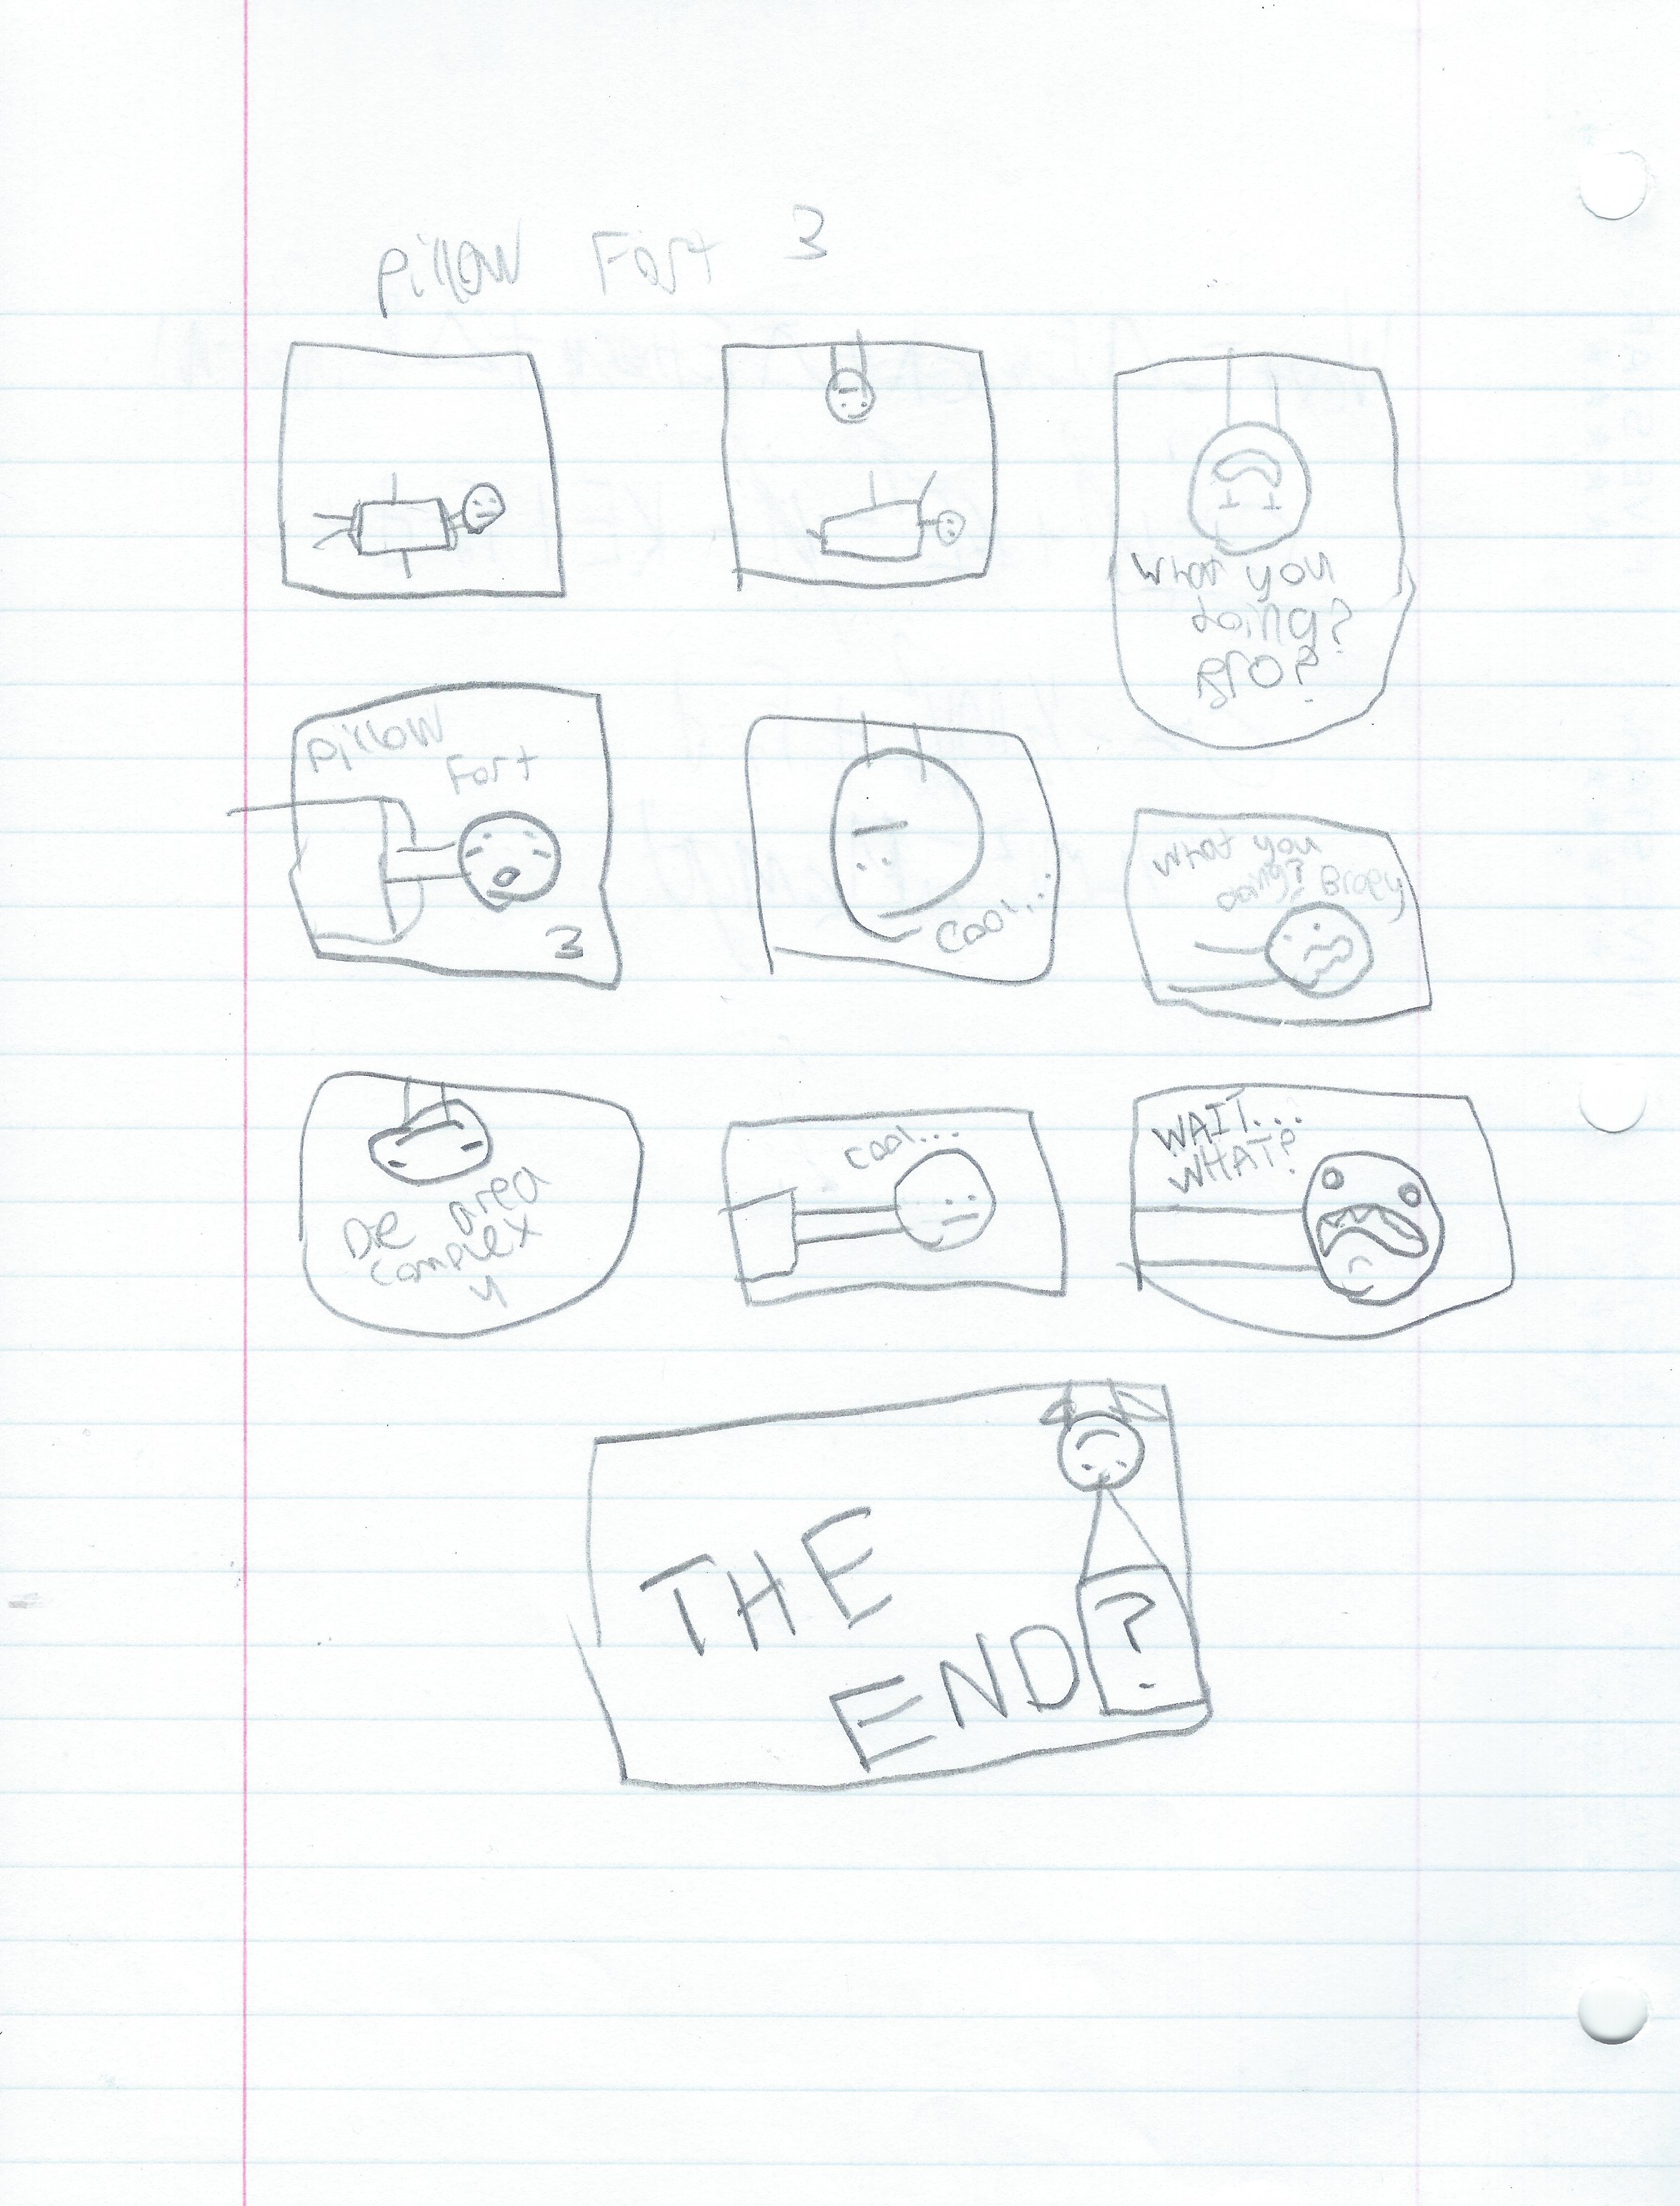 Pillow Fort 3
What you
doing?
BRO?
Pillow
Fort
3
Cool...
What you
doing? Brody
DIE area
complex
4
cool...
WAIT...
WHAT?
THE
END?